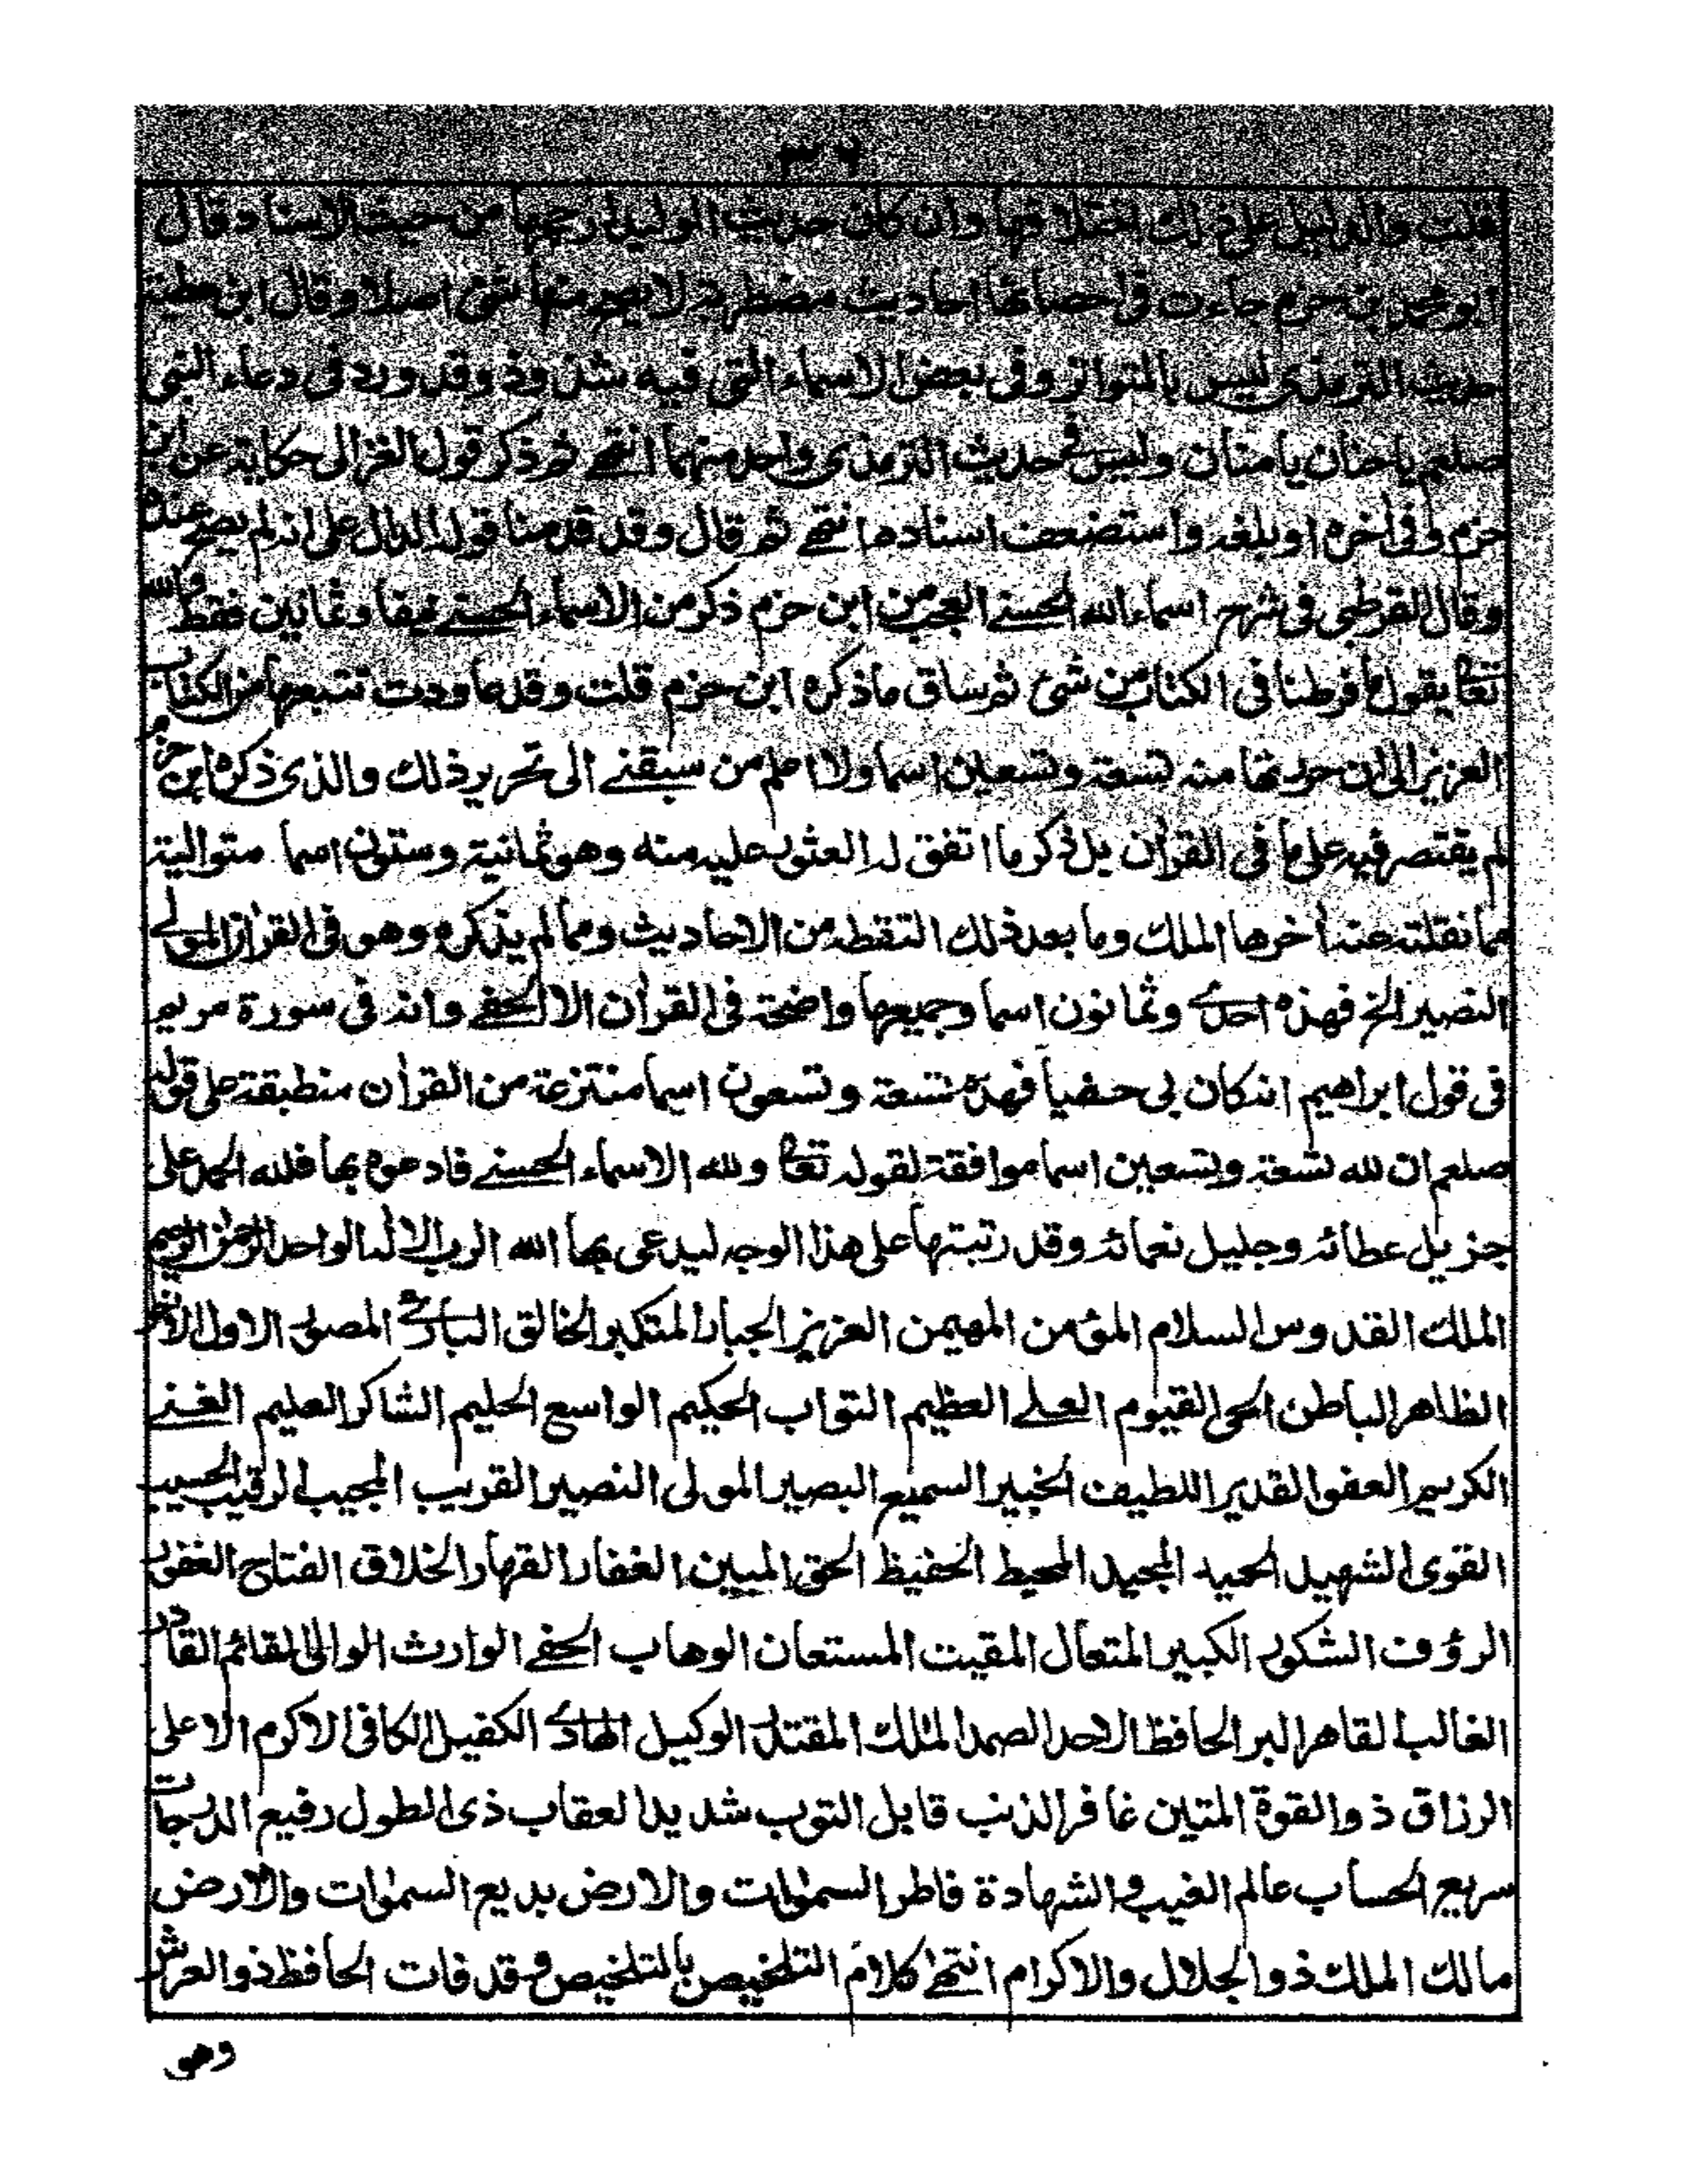 ٣٦
قلت والدليل على ذلك اختلافها وان كان حديث الوليد ارجحها من حيث الاسناد قال
ابو محمد بن حزم جاءت في احصائها احاديث مضطربة لا يصح منها شئ اصلا وقال ابن عطية
حديث الترمذي ليس بالمتواتر وفي بعض الاسماء التي فيه شذوذ وقد ورد في دعاء النبي
صلعم يا حنان يا منان وليس في حديث الترمذي واحد منهما انتهى ثم ذكر قول الغزالي حكاية عن ابن
حزم وفي اخره او بلغه واستضعف اسنادها انتهى ثم قال وقد قدمنا قوله الدال على انه لم يصح عنده
وقال القرطبي في شرح اسماء الله الحسنى العجب من ابن حزم ذكر من الاسماء الحسنى نيفا وثمانين فقط والله
تعالى يقول ما فرطنا في الكتاب من شئ ثم ساق ما ذكره ابن حزم قلت وقد عاودت تتبعها من الكتاب
العزيز الى ان حررتها منه تسعة وتسعين اسما ولا اعلم من سبقني الى تحرير ذلك والذي ذكره ابن حزم
لم يقتصر فيه على ما في القران بل ذكر ما اتفق له العثور عليه منه وهو ثمانية وستون اسما متوالية
مما نقلته عنه أخرها الملك وما بعد ذلك التقطه من الاحاديث ومما لم يذكره وهو في القرأن المولى
النصير الخ فهذه احدى وثمانون اسما وجميعها واضحة في القرأن الا الحفي وانه في سورة مريم
في قول ابراهيم انه كان بي حفيا فهذه تسعة وتسعون اسما منتزعة من القرأن منطبقة على قوله
صلعم ان لله تسعة وتسعين اسما موافقة لقوله تعالى ولله الاسماء الحسنى فادعوه بها فلله الحمد على
جزيل عطائه وجليل نعمائه وقد رتبتها على هذا الوجه ليدعى بها الله الرب الاله الواحد الرحمن الرحيم
الملك القدوس السلام المؤمن المهيمن العزيز الجبار المتكبر الخالق البارئ المصور الاول الأخر
الظاهر الباطن الحي القيوم العلي العظيم التواب الحكيم الواسع الحليم الشاكر العليم الغني
الكريم العفو القدير اللطيف الخبير السميع البصير المولى النصير القريب المجيب الرقيب الحسيب
القوى الشهيد الحميد المجيد المحيط الحفيظ الحق المبين الغفار القهار الخلاق الفتاح الغفور
الرؤف الشكور الكبير المتعال المقيت المستعان الوهاب الحفي الوارث الوالى القائم القادر
الغالب القاهر البر الحافظ الاحد الصمد الملك المقتدر الوكيل الهادي الكفيل الكافى الاكرم الاعلى
الرزاق ذو القوة المتين غافر الذنب قابل التوب شديد العقاب ذى الطول رفيع الدرجات
سريع الحساب عالم الغيب والشهادة فاطر السموات والارض بديع السموات والارض
مالك الملك ذو الجلال والاكرام انتهى كلام التلخيص بالتلخيص وقد فات الحافظ ذو العرش
وهو